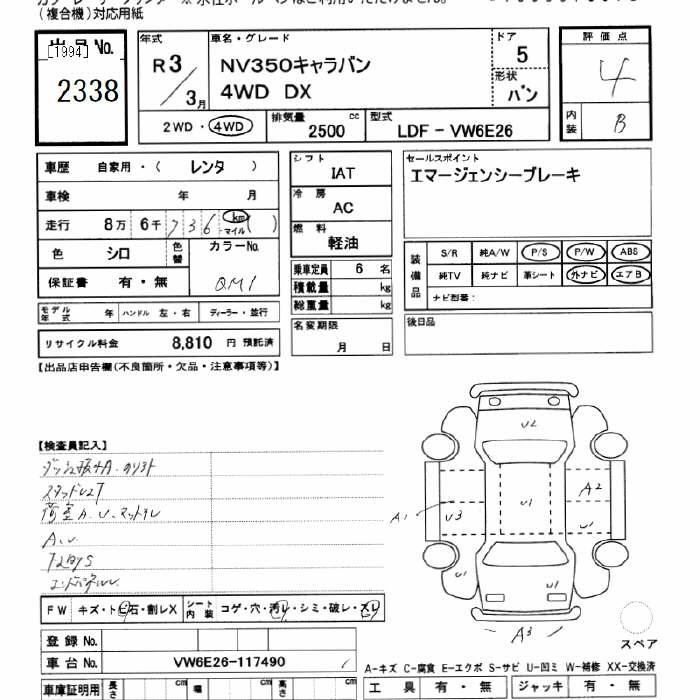 (複合機)対応用紙
出品No.
[1994]
2338
年式
R3/3月
車名・グレード
NV350キャラバン
4WD DX
ドア
5
形状
バン
評価点
4
内装
B
2WD・4WD
排気量
2500 cc
型式
LDF-VW6E26
車歴 自家用・( レンタ )
車検 年 月
走行 8万 6千 736 km マイル ( )
色 シロ 色替 カラーNo.
QM1
保証書 有・無
モデル年式 年 ハンドル 左・右 ディーラー・並行
リサイクル料金 8,810 円 預託済
シフト
IAT
冷房
AC
燃料
軽油
乗車定員 6 名
積載量 kg
総重量 kg
名変期限
月 日
セールスポイント
エマージェンシーブレーキ
装備品
S/R 純A/W P/S P/W ABS
純TV 純ナビ 革シート 外ナビ エアB
ナビ型番:
後日品
【出品店申告欄(不良箇所・欠品・注意事項等)】
【検査員記入】
A.U
U2
A1
U3
U1
A2
U1
U1
U1
A3
スペア
FW キズ・トビ石・割レX シート内装 コゲ・穴・汚レ・シミ・破レ・スレ
登録No.
車台No. VW6E26-117490
A-キズ C-腐食 E-エクボ S-サビ U-凹ミ W-補修 XX-交換済
車庫証明用 長さ cm 幅 cm 高さ cm
工具 有・無 ジャッキ 有・無